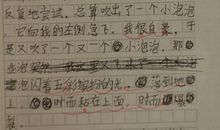 反复地尝试，总算吹出了一个小泡泡
它向我的左侧急飞。我很自豪，于
是又吹了一个又一个小泡泡，那
泡泡闪着五彩缤纷的光。落到地
上，时而粘在上面，时而爆
裂。